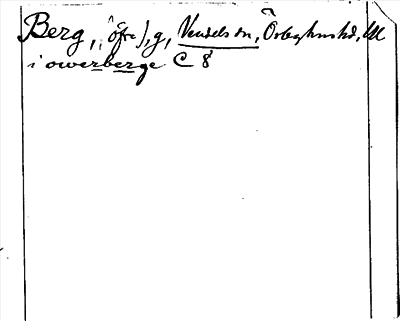 Berg, (öfre), g, Vendels sn, Örbyhus hd, Ul
i owerberge C 8